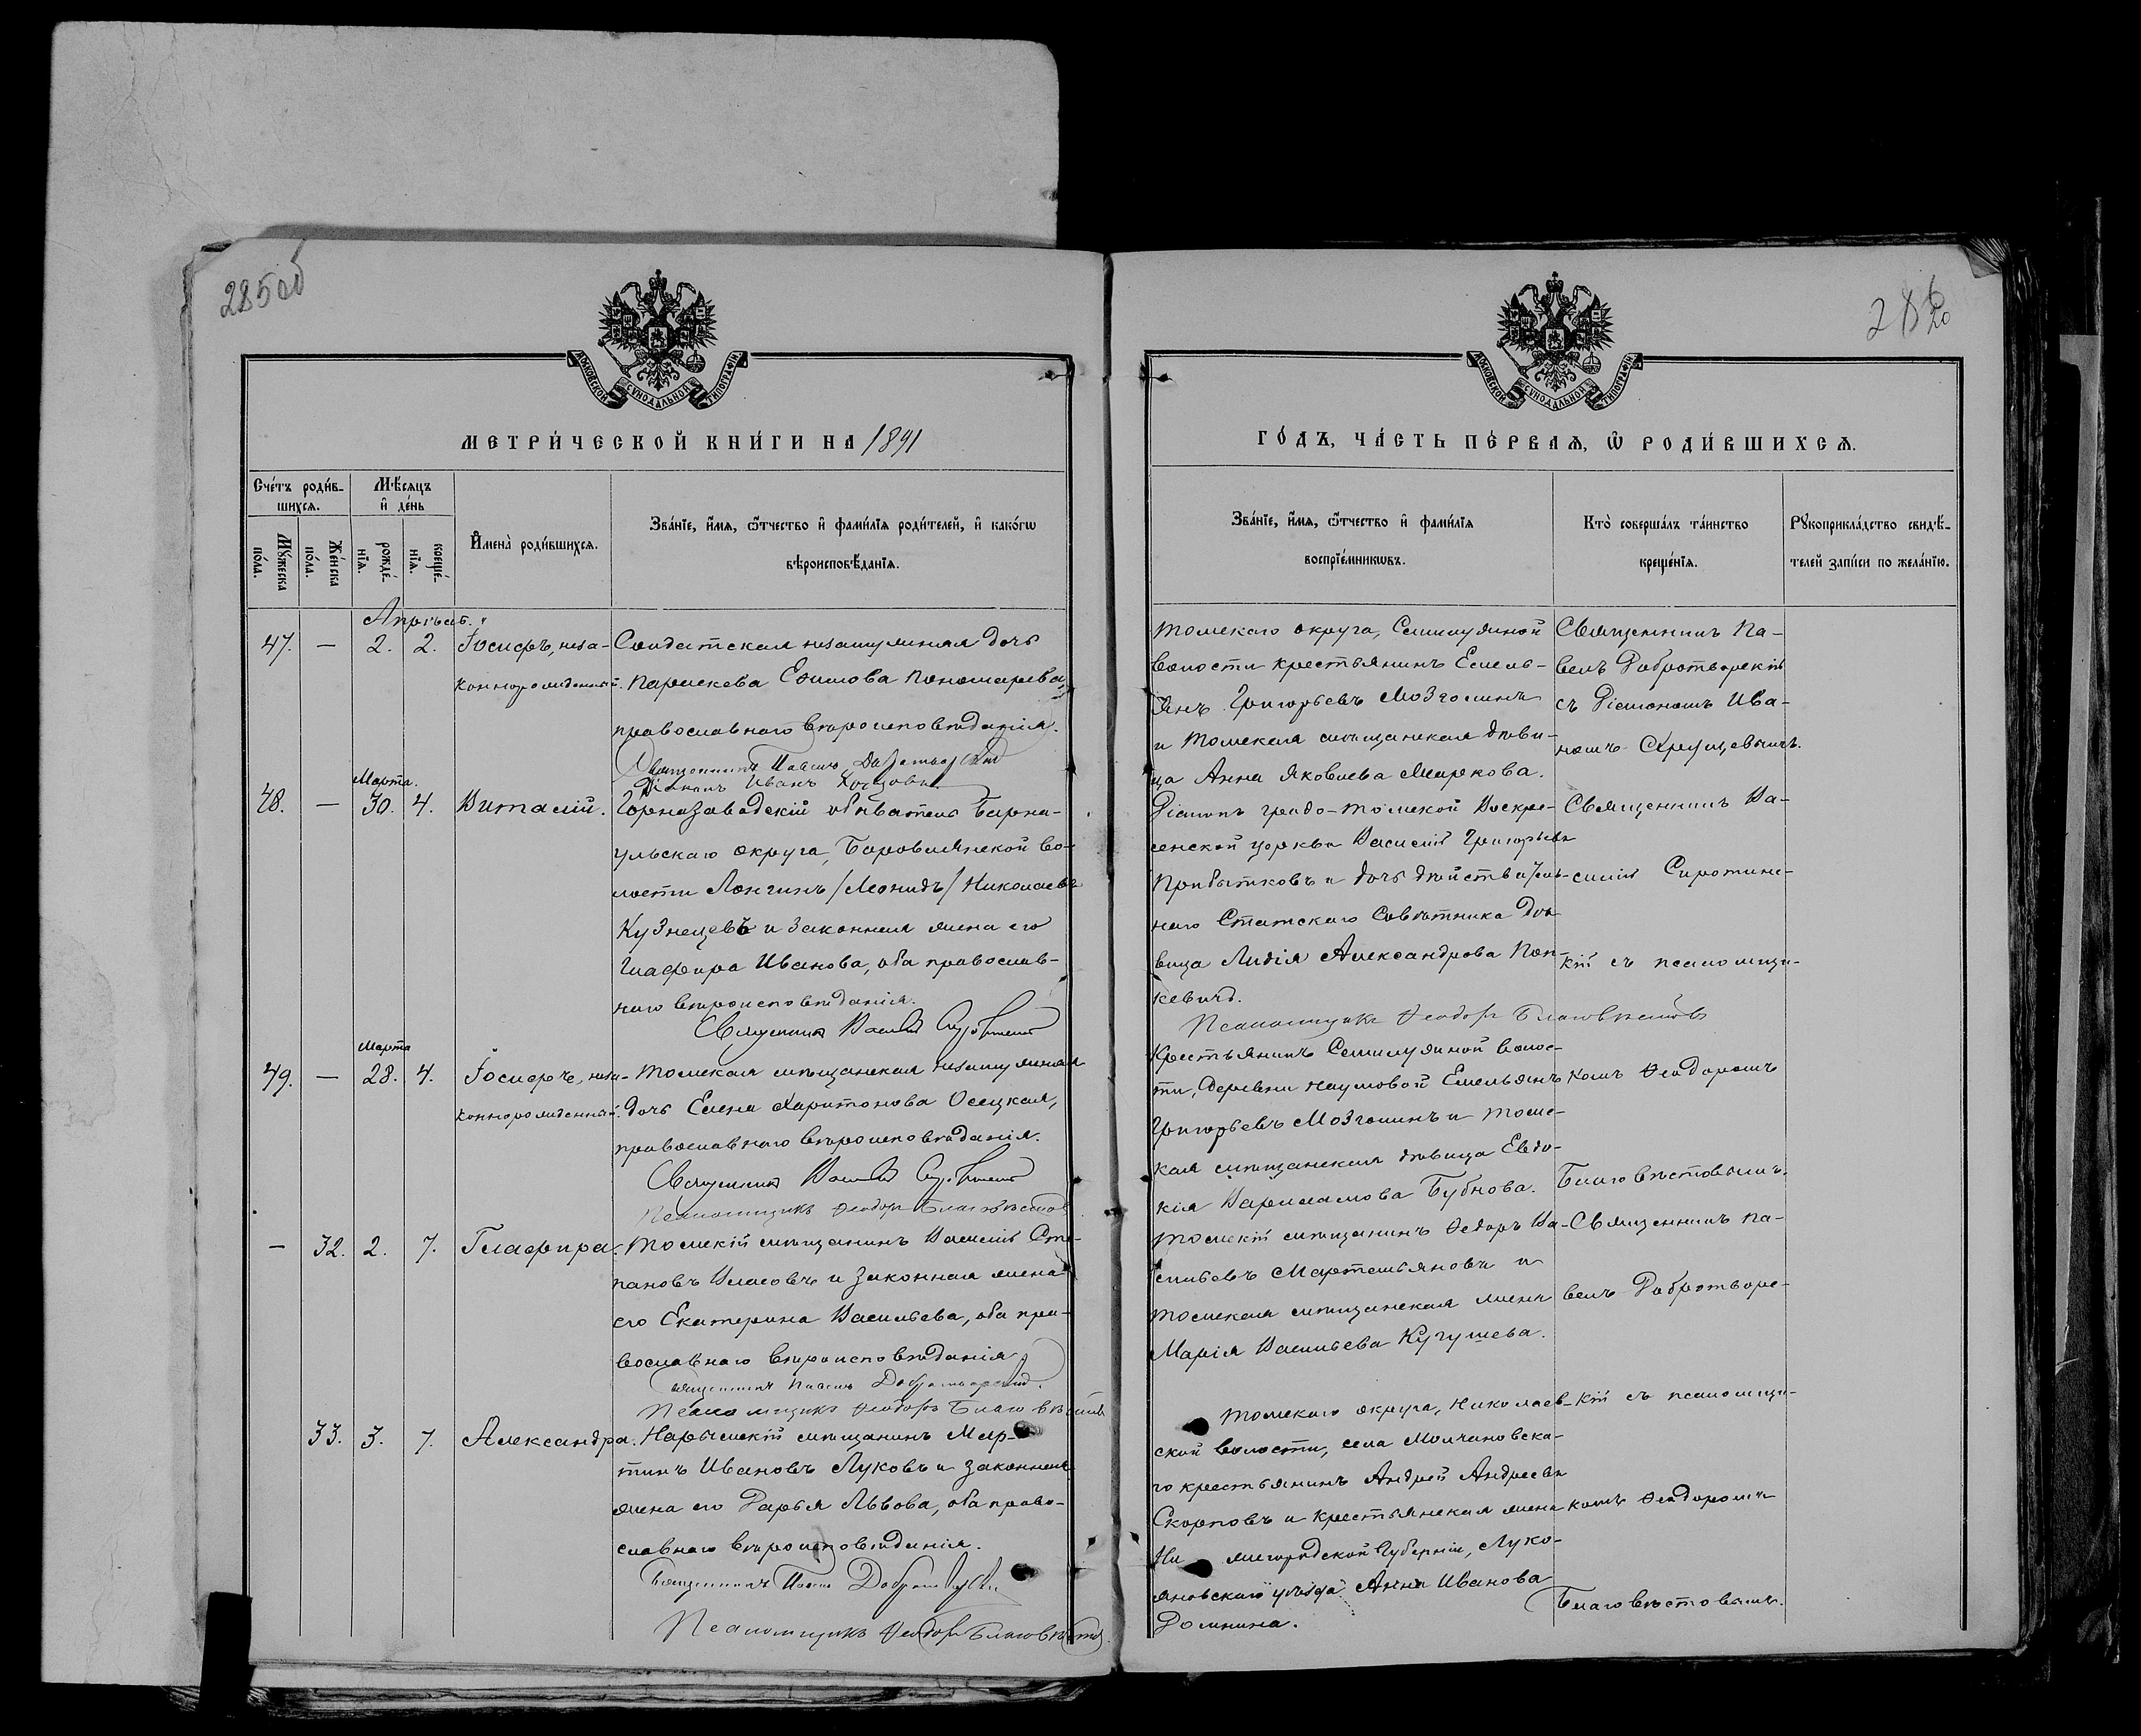 285об
МОСКОВСКОЙ СѴНОДАЛЬНОЙ ТИПОГРАФІИ
МЕТРИ́ЧЕСКОЙ КНИ́ГИ НА 1891
Сче́тъ роди́в-
шихсѧ.
Мѣ́сѧцъ
и҆ де́нь
Мꙋ́жеска
по́ла.
Же́нска
по́ла.
рожде́-
нїѧ.
креще́-
нїѧ.
И҆мена̀ роди́вшихсѧ.
Зва́нїе, и҆́мѧ, ѻ҆́тчество и҆ фами́лїѧ роди́телей, и҆ како́гѡ
вѣроисповѣ́данїѧ.
Апрѣль.
47. — 2. 2. Іосифъ, неза-
коннорожденный.
Солдатская незамужняя дочь
Параскева Ефимова Пономарева,
православнаго вѣроисповѣданія.
Священникъ Павелъ
Діаконъ Иванъ
Марта.
48. — 30. 4. Виталій.
Горнозаводскій обыватель Барна-
ульскаго округа, Боровлянской во-
лости Лонгинъ /Леонидъ/ Николаевъ
Кузнецевъ и законная жена его
Глафира Иванова, оба православ-
наго вѣроисповѣданія.
Священникъ Василій
Марта
49. — 28. 4. Іосифъ, неза-
коннорожденный.
Томская мѣщанская незамужняя
дочь Елена Харитонова Осецкая,
православнаго вѣроисповѣданія.
Священникъ Василій
Псаломщикъ Ѳеодоръ Благовѣстовъ
— 32. 2. 7. Глафира.
Томскій мѣщанинъ Василій Сте-
пановъ Власовъ и законная жена
его Екатерина Васильева, оба пра-
вославнаго вѣроисповѣданія
Священникъ Павелъ Добротворскій.
Псаломщикъ Ѳеодоръ Благовѣстовъ
33. 3. 7. Александра.
Нарымскій мѣщанинъ Мар-
тинъ Ивановъ Луковъ и законная
жена его Дарья Львова, оба право-
славнаго вѣроисповѣданія.
Священникъ Павелъ
Псаломщикъ Ѳеодоръ Благовѣстовъ
286
20
МОСКОВСКОЙ СѴНОДАЛЬНОЙ ТИПОГРАФІИ
ГО́ДЪ, ЧА́СТЬ ПЕ́РВАѦ, Ѡ҆ РОДИ́ВШИХСѦ.
Зва́нїе, и҆́мѧ, ѻ҆́тчество и҆ фами́лїѧ
воспрїе́мникѡвъ.
Кто̀ соверша́лъ та́инство
креще́нїѧ.
Рꙋкоприкла́дство свидѣ́-
телей за́писи по жела́нїю.
Томскаго округа, Семилужной
волости крестьянинъ Емель-
янъ Григорьевъ Мозголинъ
и Томская мѣщанская дѣви-
ца Анна Яковлева Маркова.
Священникъ Па-
велъ Добротворскій
съ Діакономъ Ива-
номъ
Діаконъ градо-Томской Воскре-
сенской церкви Василій Григорьевъ
Прибытковъ и дочь дѣйствитель-
наго Статскаго Совѣтника дѣ-
вица Лидія Александрова Поп-
кевичъ.
Псаломщикъ Ѳеодоръ Благовѣстовъ
Священникъ Ва-
силій Сиротинс-
кій съ псаломщи-
Крестьянинъ Семилужной волос-
ти, деревни Наумовой Емельянъ
Григорьевъ Мозголинъ и Томс-
кая мѣщанская дѣвица Евдо-
кія Варламова Бубнова.
комъ Ѳеодоромъ
Благовѣстовымъ.
Томскій мѣщанинъ Ѳедоръ Ва-
сильевъ Мартемьяновъ и
томская мѣщанская жена
Марія Васильева Кугушева.
Священникъ Па-
велъ Добротворс-
Томскаго округа, Николаев-
ской волости, села Молчановска-
го крестьянинъ Андрей Андреевъ
Скорповъ и крестьянская жена
Ни жегородской Губерніи, Луко-
яновскаго уѣзда Анна Иванова
Домнина.
кій съ псаломщи-
комъ Ѳеодоромъ
Благовѣстовымъ.